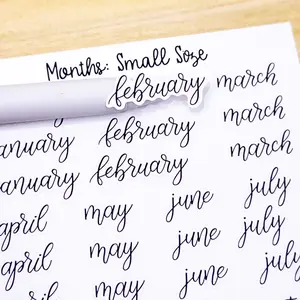 Months: Small Soze
february march
february march
january february march
january
april may june july
april may june july
april may june july